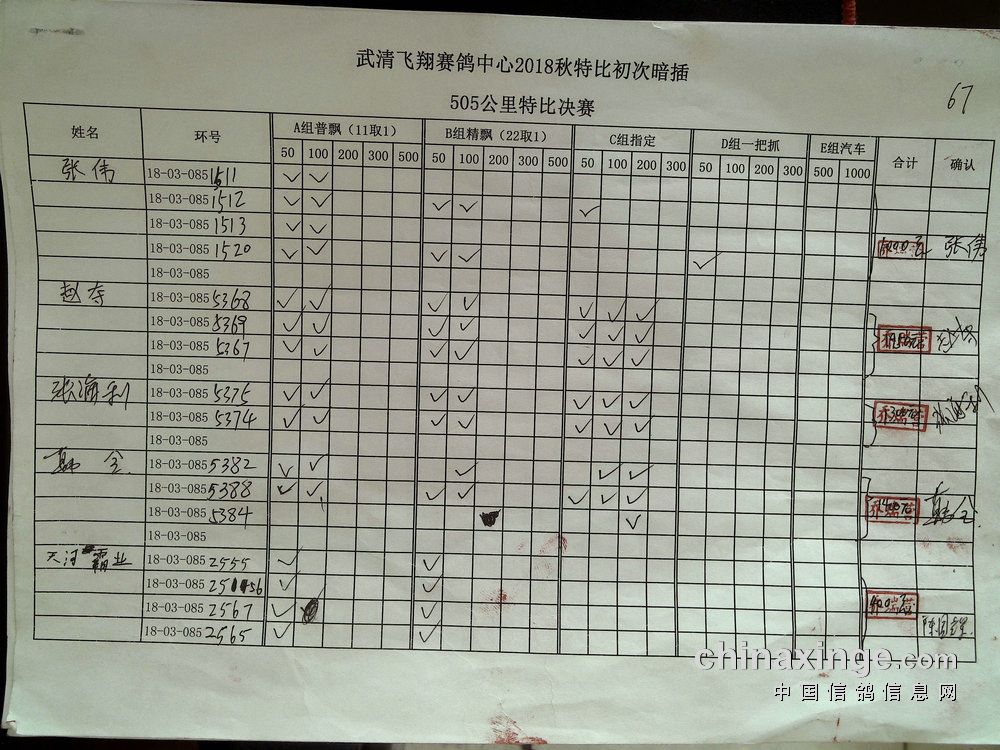 武清飞翔赛鸽中心2018秋特比初次暗插
505公里特比决赛
67
姓名 环号 A组普飘（11取1） B组精飘（22取1） C组指定 D组一把抓 E组汽车 合计 确认
50 100 200 300 500 50 100 200 300 500 50 100 200 300 50 100 200 300 500 1000
张伟 18-03-085 1511 ✓ ✓
18-03-085 1512 ✓ ✓ ✓ ✓ ✓
18-03-085 1513 ✓ ✓
18-03-085 1520 ✓ ✓ ✓ ✓ ✓ 张伟
18-03-085
18-03-085 5368 ✓ ✓ ✓ ✓ ✓ ✓ ✓
18-03-085 5369 ✓ ✓ ✓ ✓ ✓ ✓ ✓
18-03-085 5367 ✓ ✓ ✓ ✓ ✓ ✓ ✓
18-03-085
张海利 18-03-085 5375 ✓ ✓ ✓ ✓ ✓ ✓ ✓
18-03-085 5374 ✓ ✓ ✓ ✓ ✓ ✓ ✓ 张海利
18-03-085
韩全 18-03-085 5382 ✓ ✓ ✓ ✓ ✓
18-03-085 5388 ✓ ✓ ✓ ✓ ✓ ✓ ✓
18-03-085 5384 ✓ 韩全
18-03-085
天河霸业 18-03-085 2555 ✓ ✓
18-03-085 ✓ ✓
18-03-085 2567 ✓ ✓
18-03-085 2565 ✓ ✓
chinaxinge.com
中国信鸽信息网